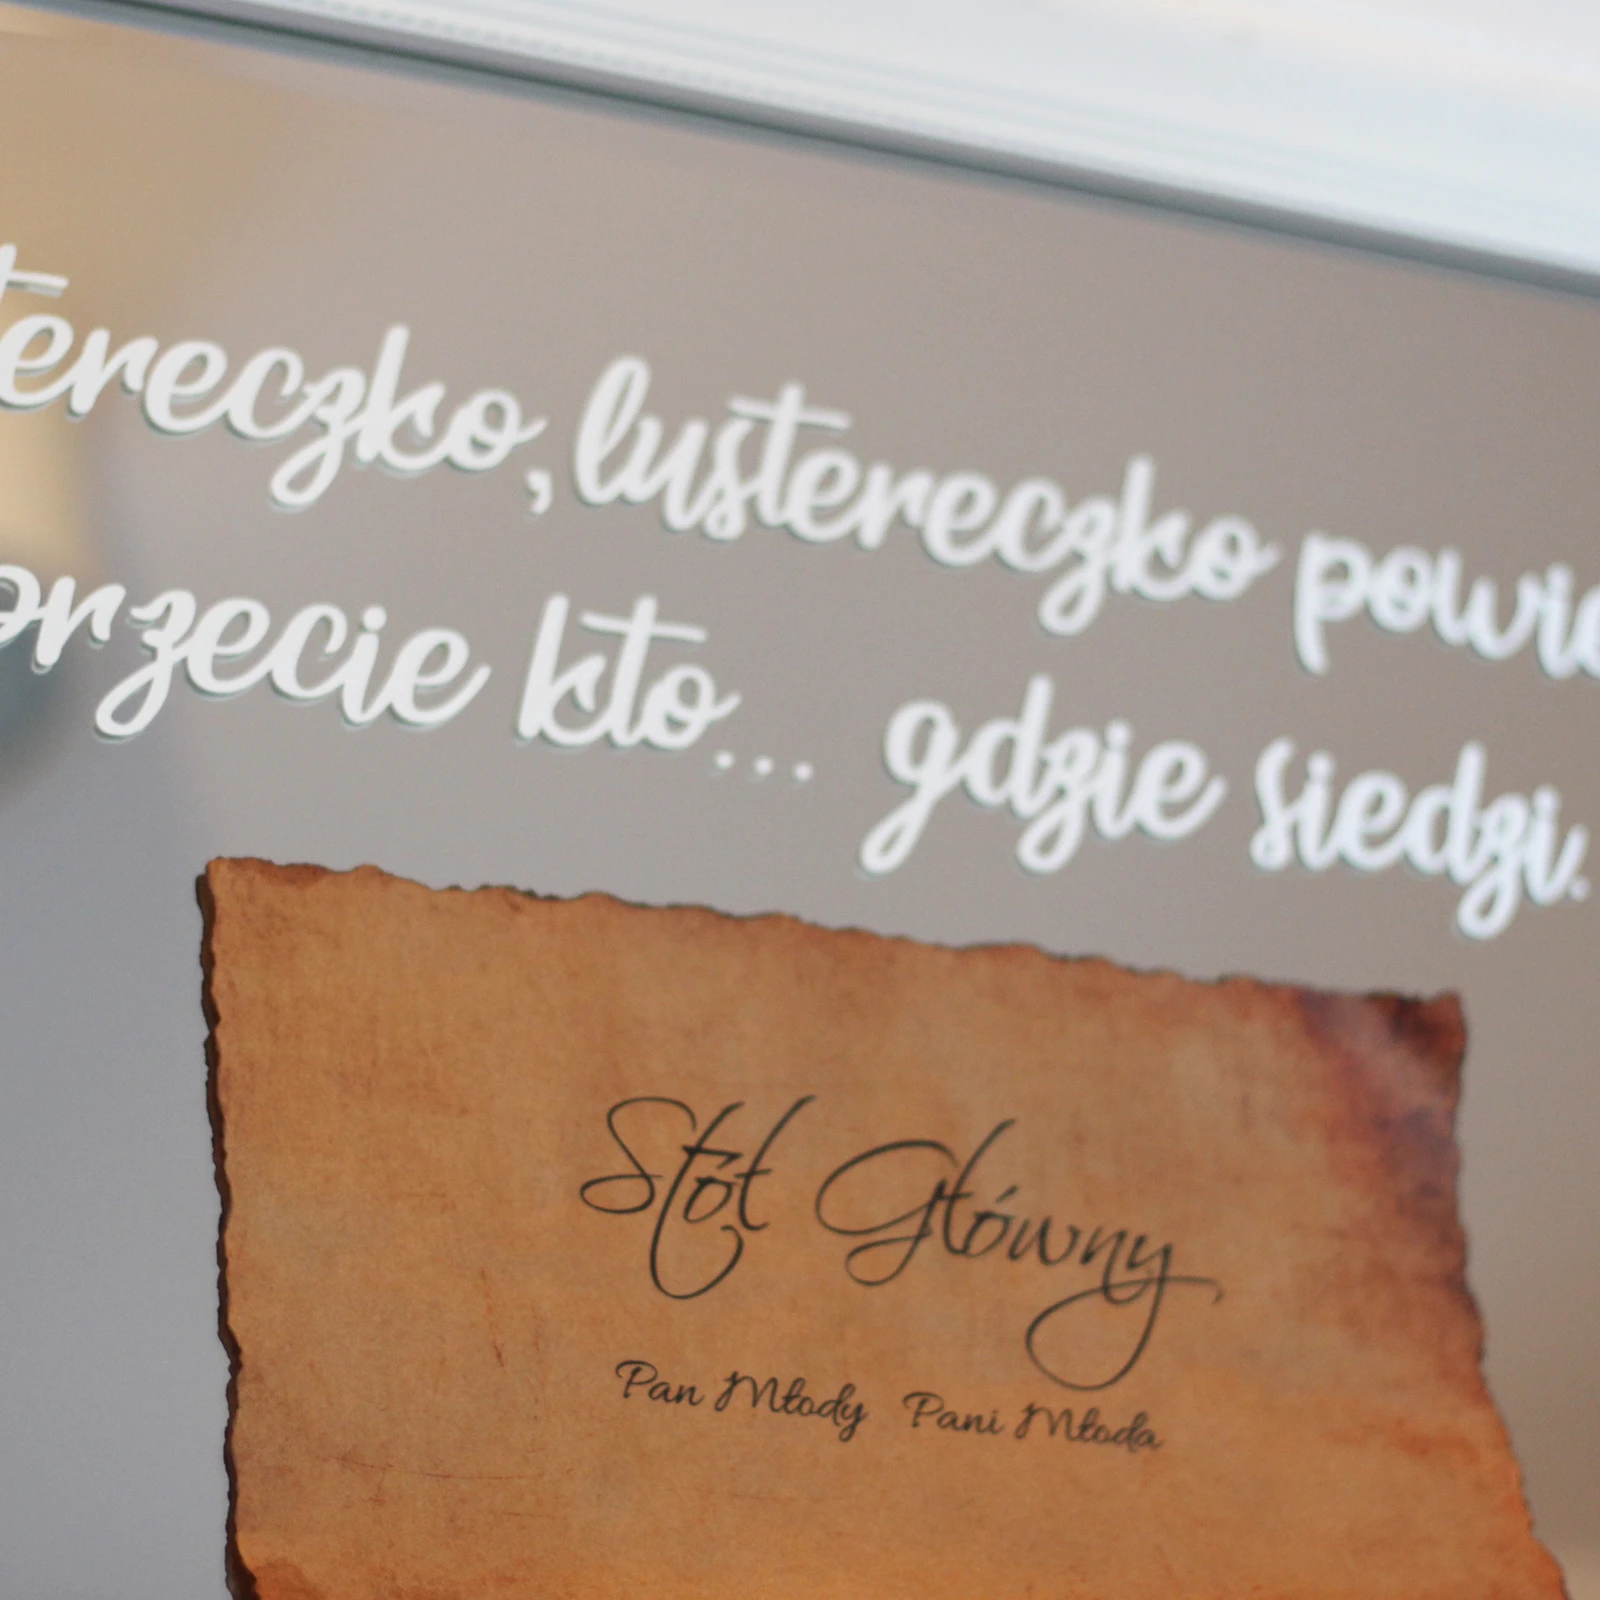 tereczko, lustereczko powie
przecie kto... gdzie siedzi.
Stół Główny
Pan Młody Pani Młoda